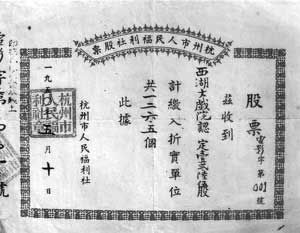 杭州市人民福利社股票
股票
電影字第001號
茲收到
西湖大戲院認定壹
優股
計繳入折實單位
共一二六五個
此據
杭州市人民福利社
一九五
年五月十日
杭州市人民福利